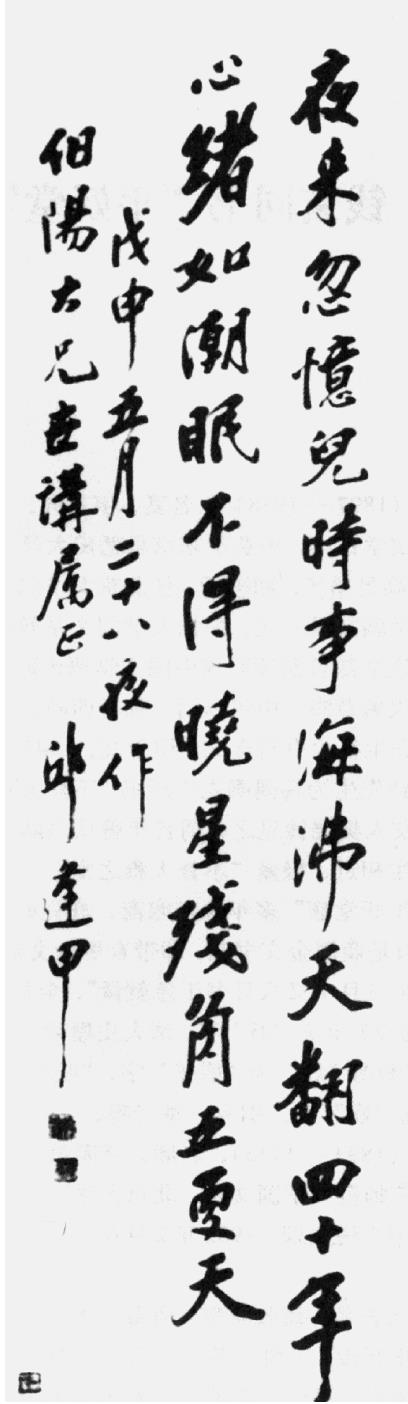 夜来忽憶兒時事海沸天翻四十年
心緒如潮眠不得曉星殘角五更天
戊申五月二十八夜作
伯陽大兄世講屬正 邱逢甲